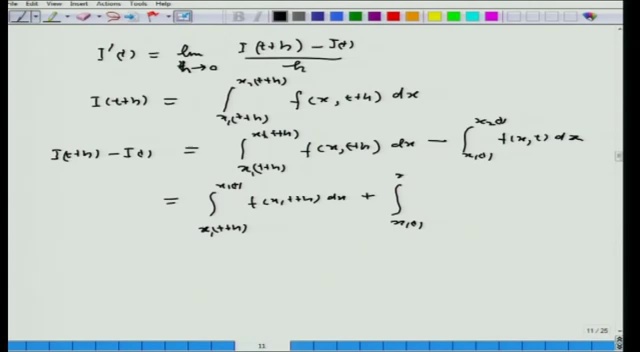 File Edit View Insert Actions Tools Help
I'(t) = lim h→0 (I(t+h) - I(t))/h
I(t+h) = ∫_{x₁(t+h)}^{x₂(t+h)} f(x, t+h) dx
I(t+h) - I(t) = ∫_{x₁(t+h)}^{x₂(t+h)} f(x, t+h) dx - ∫_{x₁(t)}^{x₂(t)} f(x, t) dx
= ∫_{x₁(t+h)}^{x₁(t)} f(x, t+h) dx + ∫_{x₁(t)}^{x}
11 / 25
11